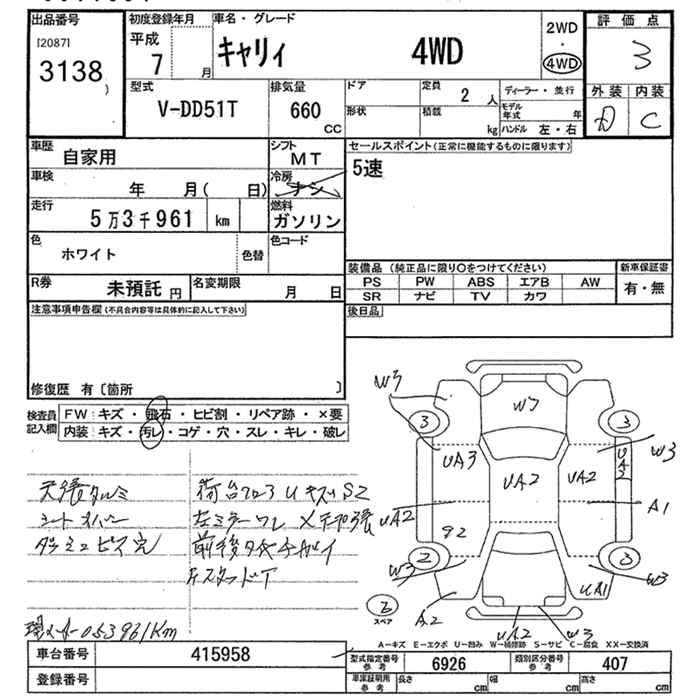 出品番号
[2087]
3138
初度登録年月
平成
7 月
車名・グレード
キャリィ 4WD
2WD
・
4WD
評価点
3
外装 内装
D C
型式
V-DD51T
排気量
660
CC
ドア
形状
定員
2 人
積載
kg
ディーラー・並行
モデル年式 年
ハンドル 左・右
車歴
自家用
シフト
MT
車検
年 月( 日)
冷房
ナシ
走行
5万3千961 km
燃料
ガソリン
色
ホワイト
色替
色コード
R券
未預託 円
名変期限
月 日
セールスポイント(正常に機能するものに限ります)
5速
装備品 (純正品に限り○をつけてください)
新車保証書
PS PW ABS エアB AW
有・無
SR ナビ TV カワ
後日品
注意事項申告欄(不具合内容等は具体的に記入して下さい)
修復歴 有〔箇所 〕
検査員記入欄
FW: キズ・飛石・ヒビ割・リペア跡・×要
内装: キズ・汚レ・コゲ・穴・スレ・キレ・破レ
天張タルミ
シートカバー
ダッシュビス穴
荷台フロアUキズS2
左ミラーワレ
前後タイヤチガイ
053961Km
W3
W7
3
3
UA3
W3
UA3
UA2
UA2
UA2
A1
2
3
W3
W3
A2
UA1
UA2
W3
スペア
A−キズ E−エクボ U−凹み W−補修跡 S−サビ C−腐食 XX−交換済
車台番号
415958
登録番号
型式指定番号
参考
6926
類別区分番号
参考
407
車庫証明用
参考
長さ cm
幅 cm
高さ cm